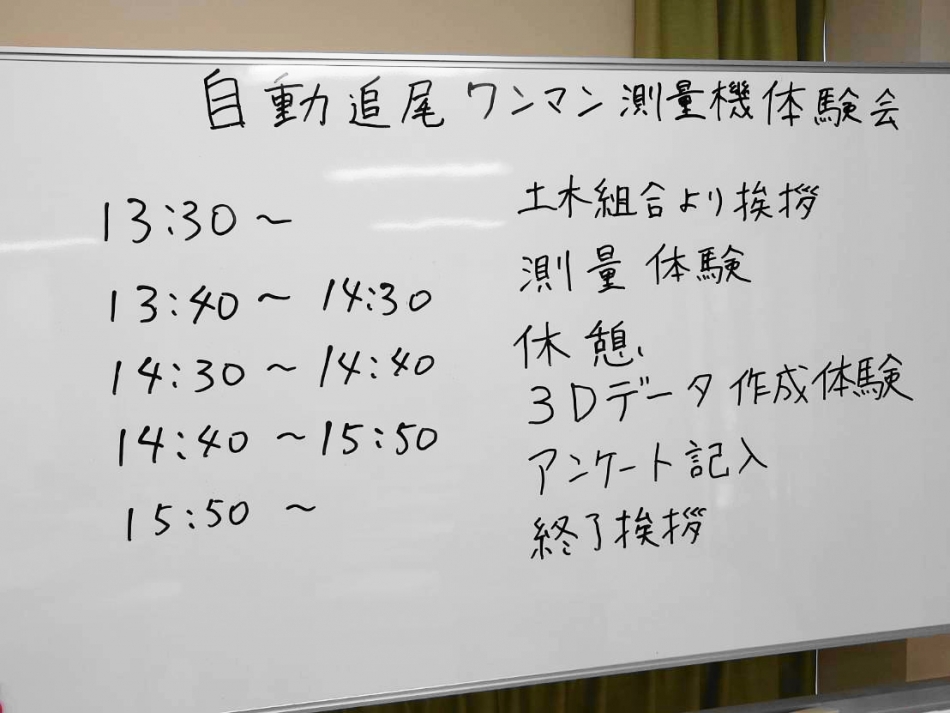 自動追尾ワンマン測量機体験会
13:30～ 土木組合より挨拶
13:40～14:30 測量体験
14:30～14:40 休憩
14:40～15:50 3Dデータ作成体験
アンケート記入
15:50～ 終了挨拶